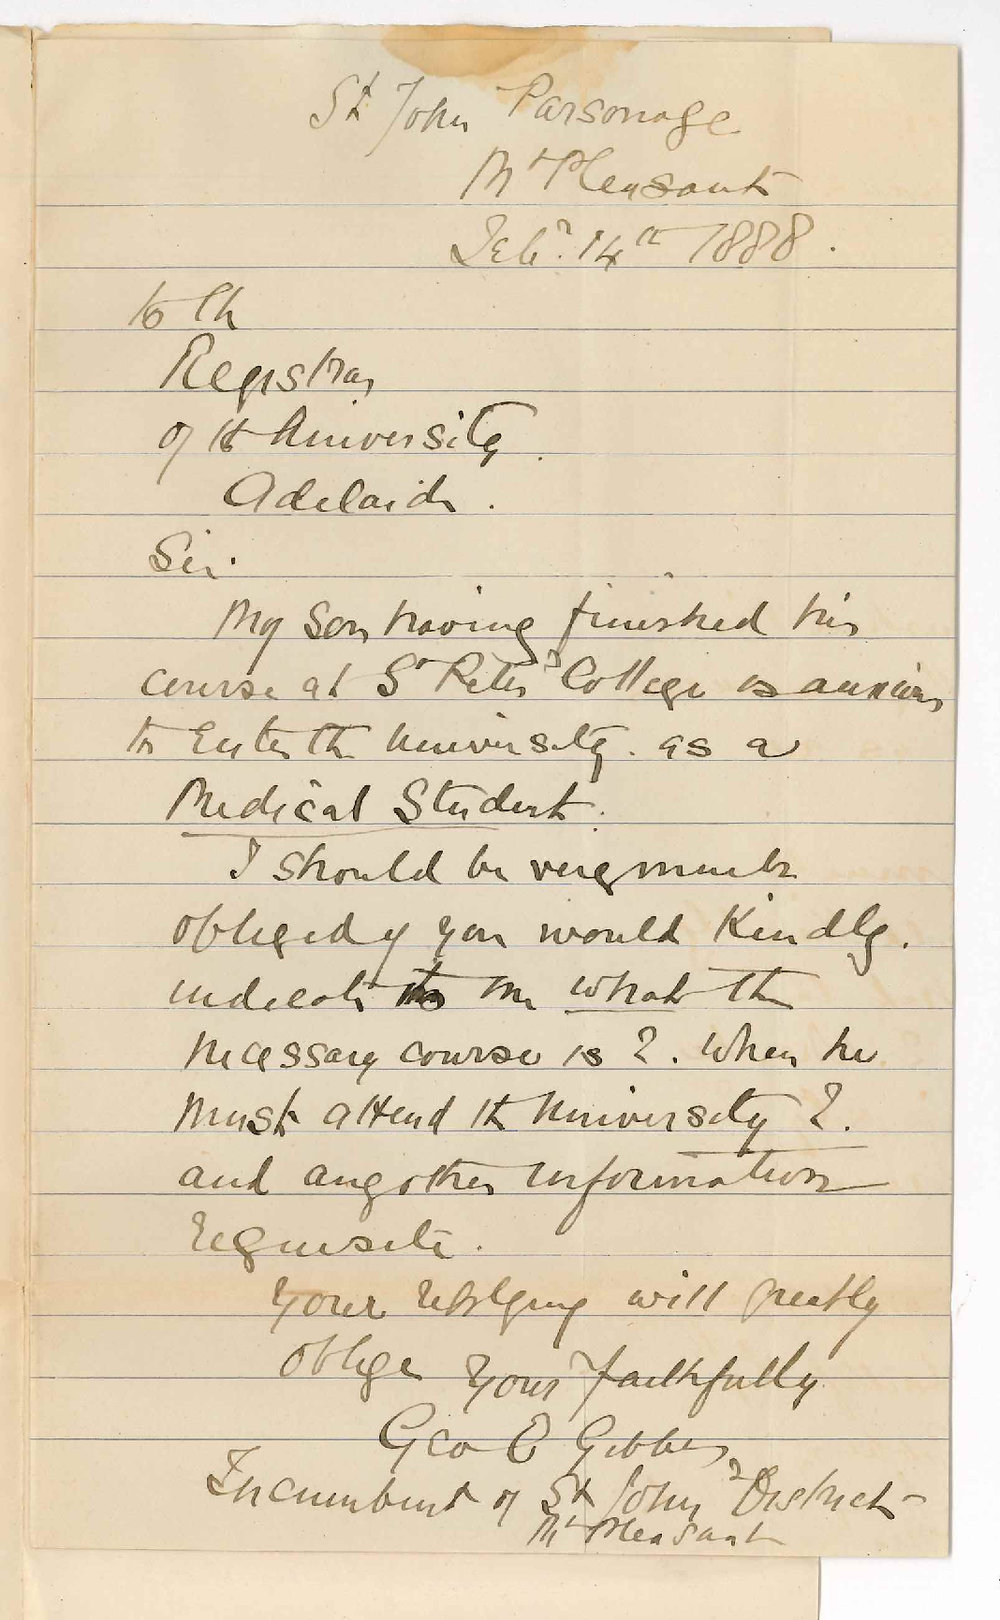 St John Parsonage
Mt Pleasant
Feby. 14th 1888.
to the
Registrar
of the University
Adelaide.
Sir.
My Son having finished his
course at St Peters College is anxious
to Enter the University. as a
Medical Student.
I should be very much
obliged if you would Kindly.
indicate to me what the
necessary course is ?. When he
must attend the University ?.
and any other information
requisite.
Your replying will greatly
oblige Yours faithfully
Geo E Gibbes
Incumbent of St John's District
Mt Pleasant